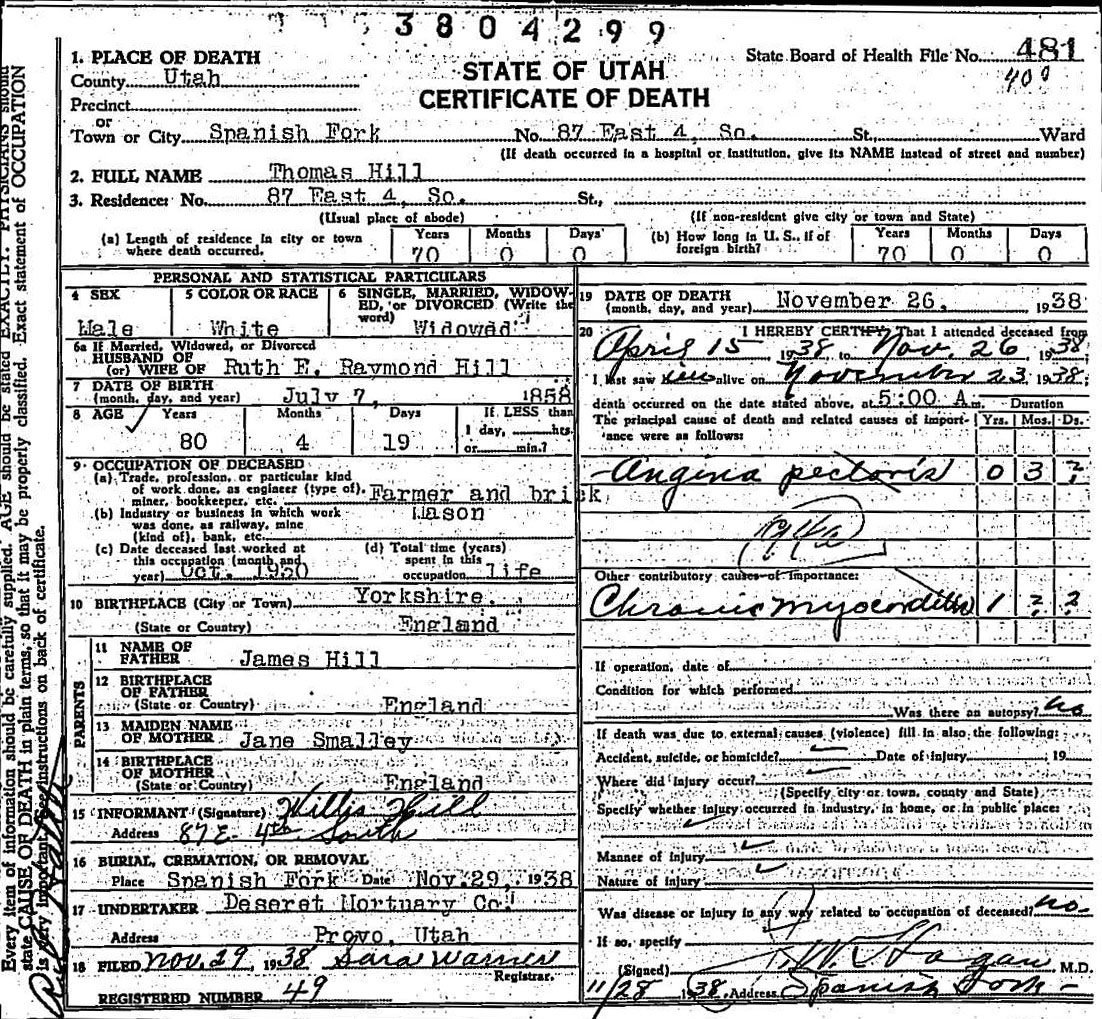 3804299
State Board of Health File No. 481
400
STATE OF UTAH
CERTIFICATE OF DEATH
1. PLACE OF DEATH
County Utah
Precinct
or
Town or City Spanish Fork No. 87 East 4, So. St., Ward
(If death occurred in a hospital or institution, give its NAME instead of street and number)
2. FULL NAME Thomas Hill
3. Residence: No. 87 East 4, So. St.,
(Usual place of abode) (If non-resident give city or town and State)
(a) Length of residence in city or town where death occurred. Years 70 Months 0 Days 0
(b) How long in U. S., if of foreign birth? Years 70 Months 0 Days 0
PERSONAL AND STATISTICAL PARTICULARS
4 SEX Male
5 COLOR OR RACE White
6 SINGLE, MARRIED, WIDOWED, or DIVORCED (Write the word) Widowed
6a If Married, Widowed, or Divorced
HUSBAND OF
(or) WIFE OF Ruth E. Raymond Hill
7 DATE OF BIRTH
(month, day, and year) July 7, 1858
8 AGE Years 80 Months 4 Days 19 If LESS than 1 day, hrs. or min.?
9 OCCUPATION OF DECEASED
(a) Trade, profession, or particular kind
of work done, as engineer (type of),
miner, bookkeeper, etc. Farmer and brick
(b) Industry or business in which work Mason
was done, as railway, mine
(kind of), bank, etc.
(c) Date deceased last worked at
this occupation (month and
year) Oct. 1930
(d) Total time (years)
spent in this
occupation life
10 BIRTHPLACE (City or Town) Yorkshire.
(State or Country) England
PARENTS
11 NAME OF
FATHER James Hill
12 BIRTHPLACE
OF FATHER
(State or Country) England
13 MAIDEN NAME
OF MOTHER Jane Smalley
14 BIRTHPLACE
OF MOTHER
(State or Country) England
15 INFORMANT (Signature) Willis Hill
Address 87 E. 4th South
16 BURIAL, CREMATION, OR REMOVAL
Place Spanish Fork Date Nov. 29, 1938
17 UNDERTAKER Deseret Mortuary Co.
Address Provo, Utah
18 FILED Nov. 29 1938 Sara Warner
Registrar.
REGISTERED NUMBER 49
19 DATE OF DEATH
(month, day, and year) November 26, 1938
20 I HEREBY CERTIFY, That I attended deceased from
April 15, 1938, to Nov. 26 1938,
I last saw him alive on November 23 1938;
death occurred on the date stated above, at 5:00 A.m. Duration
The principal cause of death and related causes of importance were as follows: Yrs. Mos. Ds.
Angina pectoris 0 3 ?
94a
Other contributory causes of importance:
Chronic myocarditis 1 ? ?
If operation, date of
Condition for which performed
Was there an autopsy? no
If death was due to external causes (violence) fill in also the following:
Accident, suicide, or homicide? Date of injury , 19
Where did injury occur?
(Specify city or town, county and State)
Specify whether injury occurred in industry, in home, or in public place:
Manner of injury
Nature of injury
Was disease or injury in any way related to occupation of deceased? no
If so, specify
(Signed) W. Hagan, M.D.
11/28 1938, Address Spanish Fork
Every item of information should be carefully supplied. AGE should be stated EXACTLY. PHYSICIANS should
state CAUSE OF DEATH in plain terms, so that it may be properly classified. Exact statement of OCCUPATION
is very important. See instructions on back of certificate.